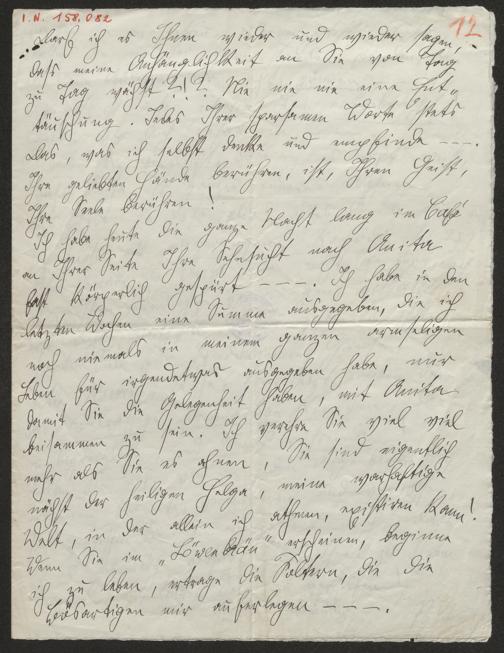 I.N. 158.082
12
Darf ich es Ihnen wieder und wieder sagen,
dass meine Anhänglichkeit an Sie von Tag
zu Tag wächst?!? Nie nie nie eine Ent-
täuschung. Jedes Ihrer sparsamen Worte stets
das, was ich selbst denke und empfinde ---.
Ihre geliebten Hände berühren, ist, Ihren Geist,
Ihre Seele berühren!
Ich habe heute die ganze Nacht lang im Café
an Ihrer Seite Ihre Sehnsucht nach Anita
fast körperlich gespürt ---. Ich habe in den
letzten Wochen eine Summe ausgegeben, die ich
noch niemals in meinem ganzen armseligen
Leben, für irgendetwas ausgegeben habe, nur
damit Sie die Gelegenheit haben, mit Anita
beisammen zu sein. Ich verehre Sie viel viel
mehr als Sie es ahnen, Sie sind eigentlich
nächst der heiligen Helga, meine warhaftige
Welt, in der allein ich athmen, existiren kann!
Wenn Sie im „Löwenbräu" erscheinen, beginne
ich zu leben, ertrage die Foltern, die die
Bösartigen mir auferlegen ---.